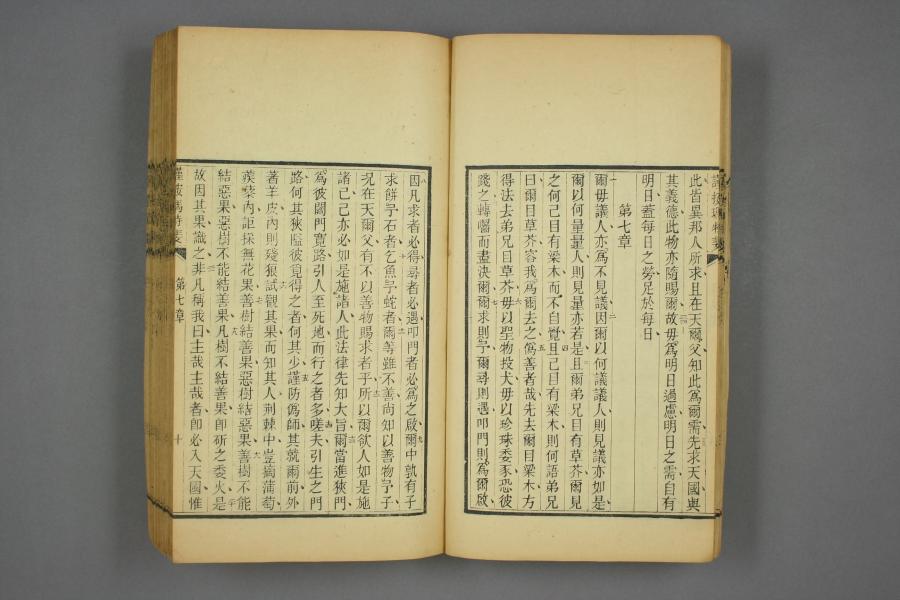 此皆異邦人所求且在天爾父知此爲爾需先求天國與
其義德此物亦隨賜爾故毋爲明日過慮明日之需自有
明日蓋每日之勞足於每日
第七章
爾毋議人亦爲不見議因爾以何議議人則見議亦如是
爾以何量量人則見量亦若是且爾弟兄目有草芥爾見
之何己目有梁木而不自覺且己目有梁木則何語弟兄
曰爾目草芥容我爲爾去之僞善者哉先去爾目梁木方
得法去弟兄目草芥毋以聖物投犬毋以珍珠委豕恐彼
踐之轉囓而盡決爾爾求則予爾尋則遇叩門則爲爾啟
因凡求者必得尋者必遇叩門者必爲之啟爾中孰有子
求餅予石者乞魚予蛇者爾等雖不善尚知以善物予子
况在天爾父有不以善物賜求者乎所以爾欲人如是施
諸己己亦必如是施諸人此法律先知大旨爾當進狹門
爲彼闊門寬路引人至死地而行之者多嗟夫引生之門
路何其狹隘彼覓得之者何其少謹防僞師其就爾前外
著羊皮內則殘狼試觀其果而知其人荆棘中豈摘蒲萄
蒺藜內詎採無花果善樹結善果惡樹結惡果善樹不能
結惡果惡樹不能結善果凡樹不結善果即斫之委火是
故因其果識之非凡稱我曰主哉主哉者即必入天國惟
第七章
十